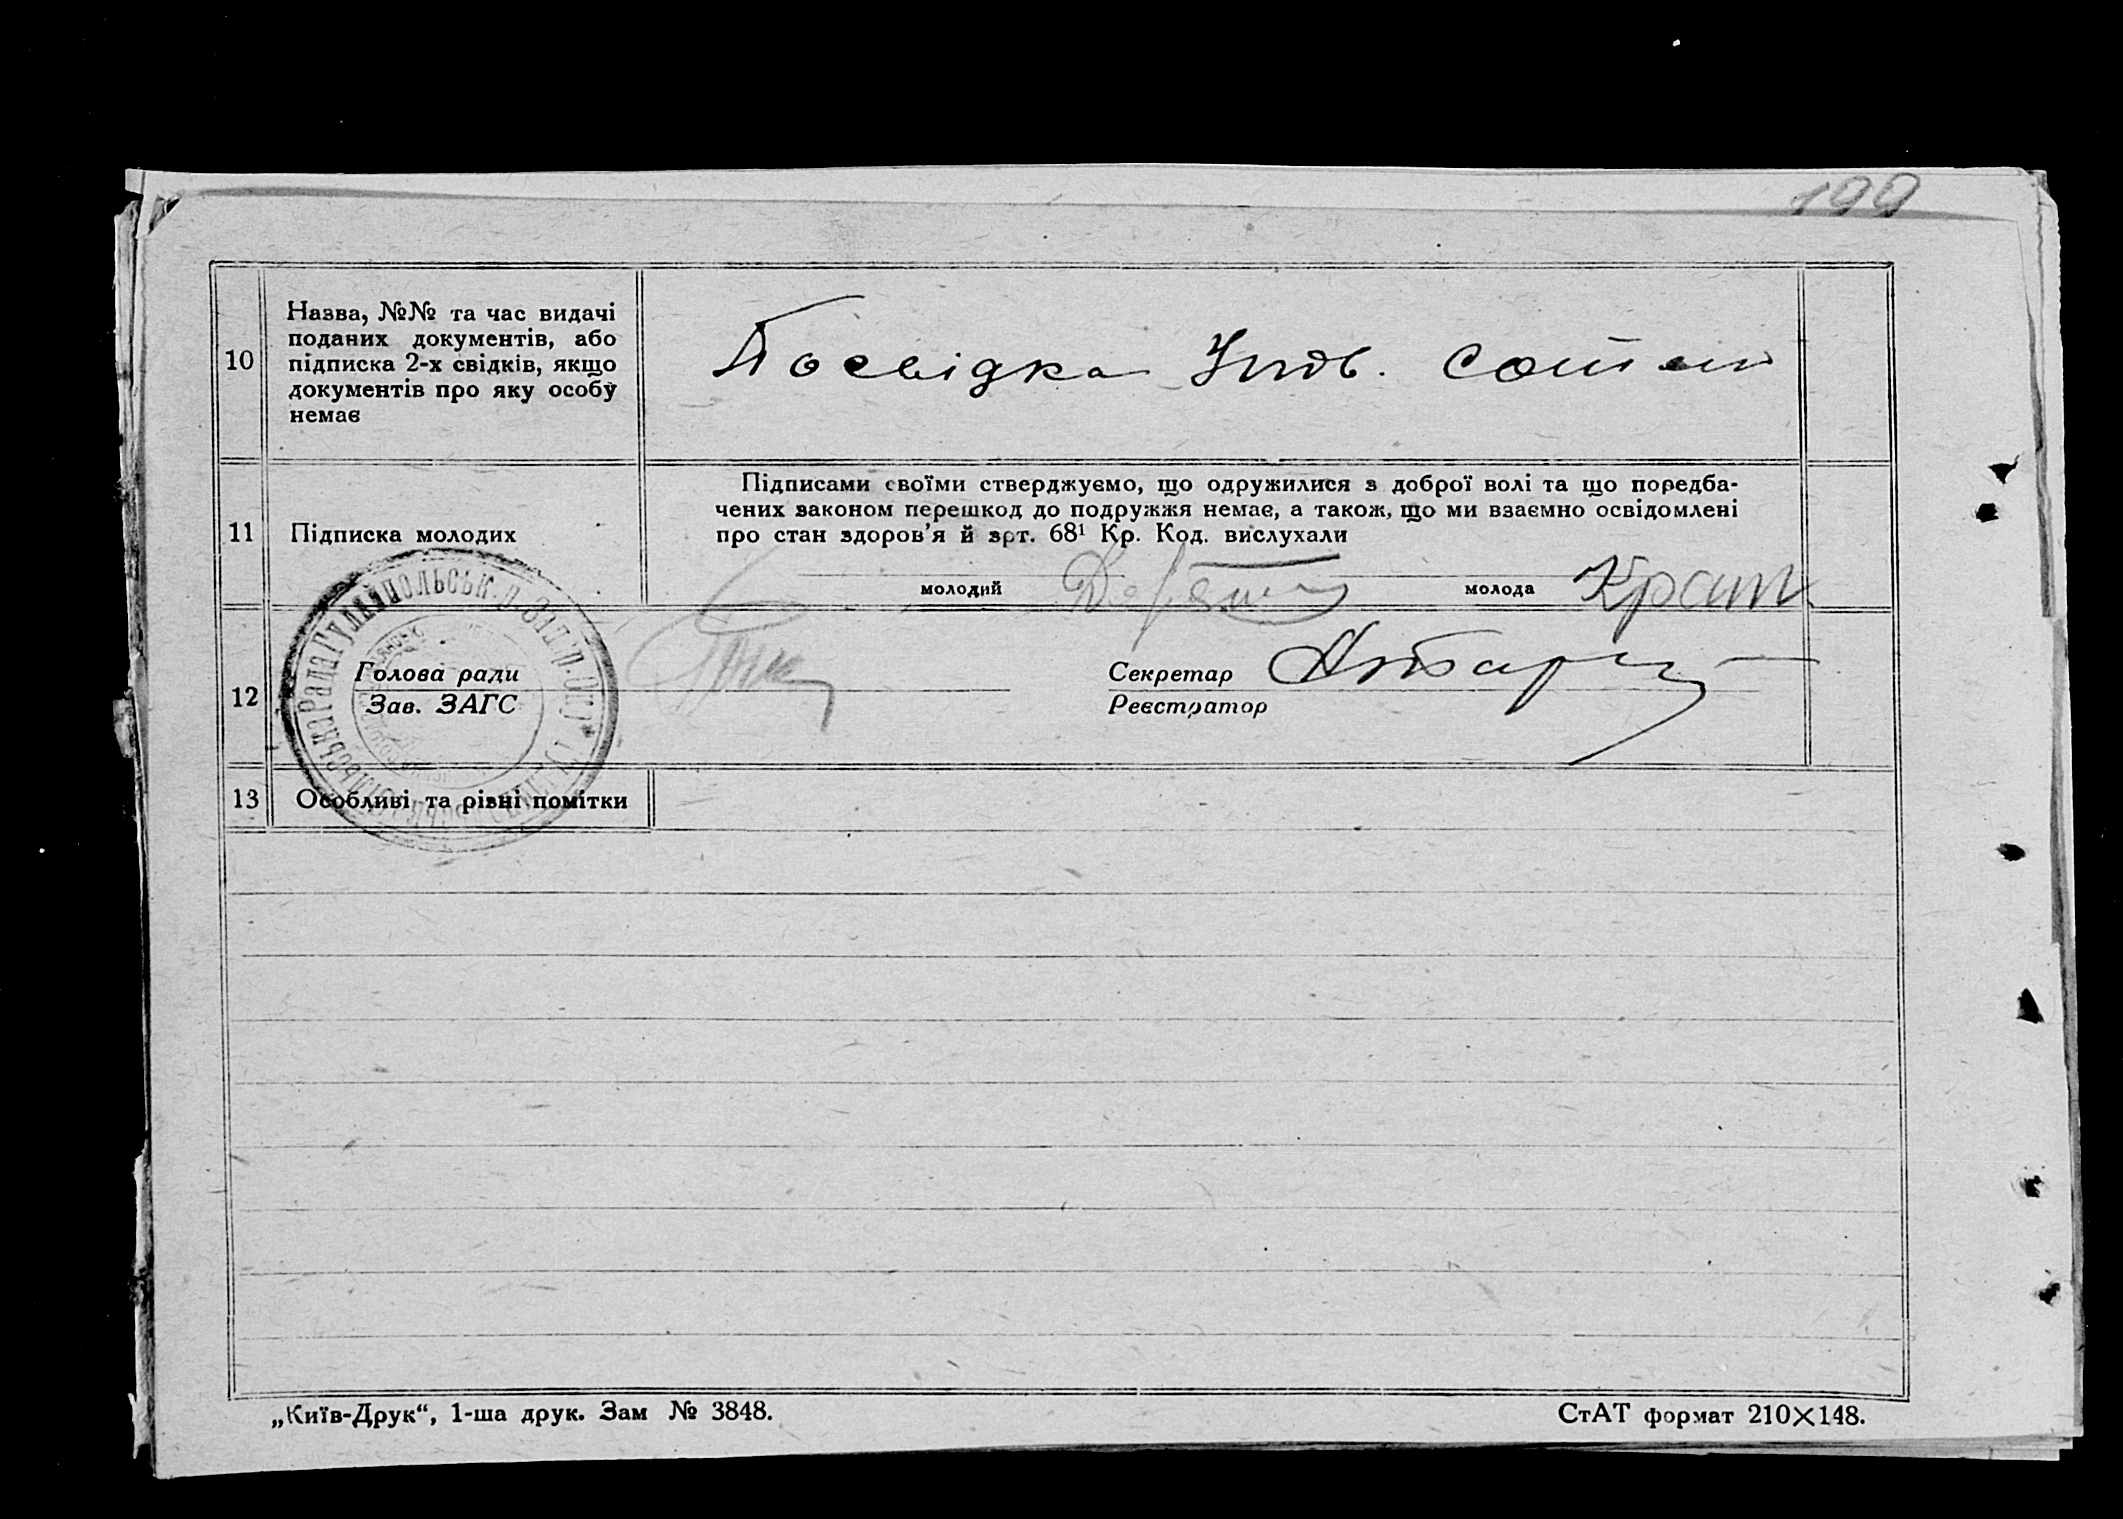 199
10
Назва, №№ та час видачі
поданих документів, або
підписка 2-х свідків, якщо
документів про яку особу
немає
Посвідка Упов. сотни
11
Підписка молодих
Підписами своїми стверджуємо, що одружилися з доброї волі та що поредба-
чених законом перешкод до подружжя немає, а також, що ми взаємно освідомлені
про стан здоров'я й арт. 68¹ Кр. Код. вислухали
молодий
молода
12
Голова ради
Зав. ЗАГС
Секретар
Реєстратор
13
Особливі та різні помітки
„Київ-Друк“, 1-ша друк. Зам № 3848.
СтАТ формат 210×148.